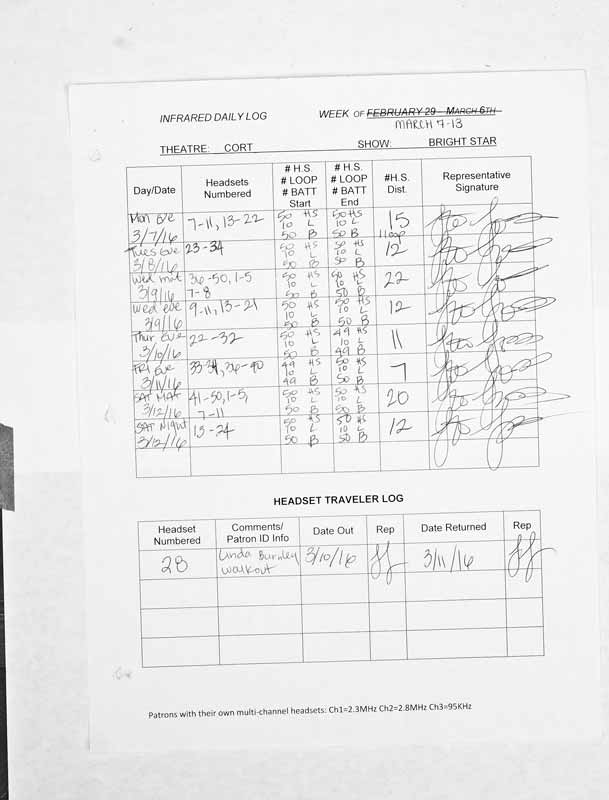 INFRARED DAILY LOG WEEK OF FEBRUARY 29 – MARCH 6TH
MARCH 7-13
THEATRE: CORT SHOW: BRIGHT STAR
Day/Date Headsets Numbered # H.S. # LOOP # BATT Start # H.S. # LOOP # BATT End #H.S. Dist. Representative Signature
Mon Eve 3/7/16 7-11, 13-22 50 HS 10 L 50 B 50 HS 10 L 50 B 15 1 loop
Tues Eve 3/8/16 23-34 50 HS 10 L 50 B 50 HS 10 L 50 B 12
Wed mat 3/9/16 36-50, 1-5 7-8 50 HS 10 L 50 B 50 HS 10 L 50 B 22
Wed eve 3/9/16 9-11, 13-21 50 HS 10 L 50 B 50 HS 10 L 50 B 12
Thur Eve 3/10/16 22-32 50 HS 10 L 50 B 49 HS 10 L 49 B 11
FRI Eve 3/11/16 33-34, 36-40 49 HS 10 L 49 B 50 HS 10 L 50 B 7
SAT MAT 3/12/16 41-50, 1-5, 7-11 50 HS 10 L 50 B 50 HS 10 L 50 B 20
SAT Night 3/12/16 13-24 50 HS 10 L 50 B 50 HS 10 L 50 B 12
HEADSET TRAVELER LOG
Headset Numbered Comments/ Patron ID Info Date Out Rep Date Returned Rep
28 Linda Burnley walkout 3/10/16 3/11/16
Patrons with their own multi-channel headsets: Ch1=2.3MHz Ch2=2.8MHz Ch3=95KHz